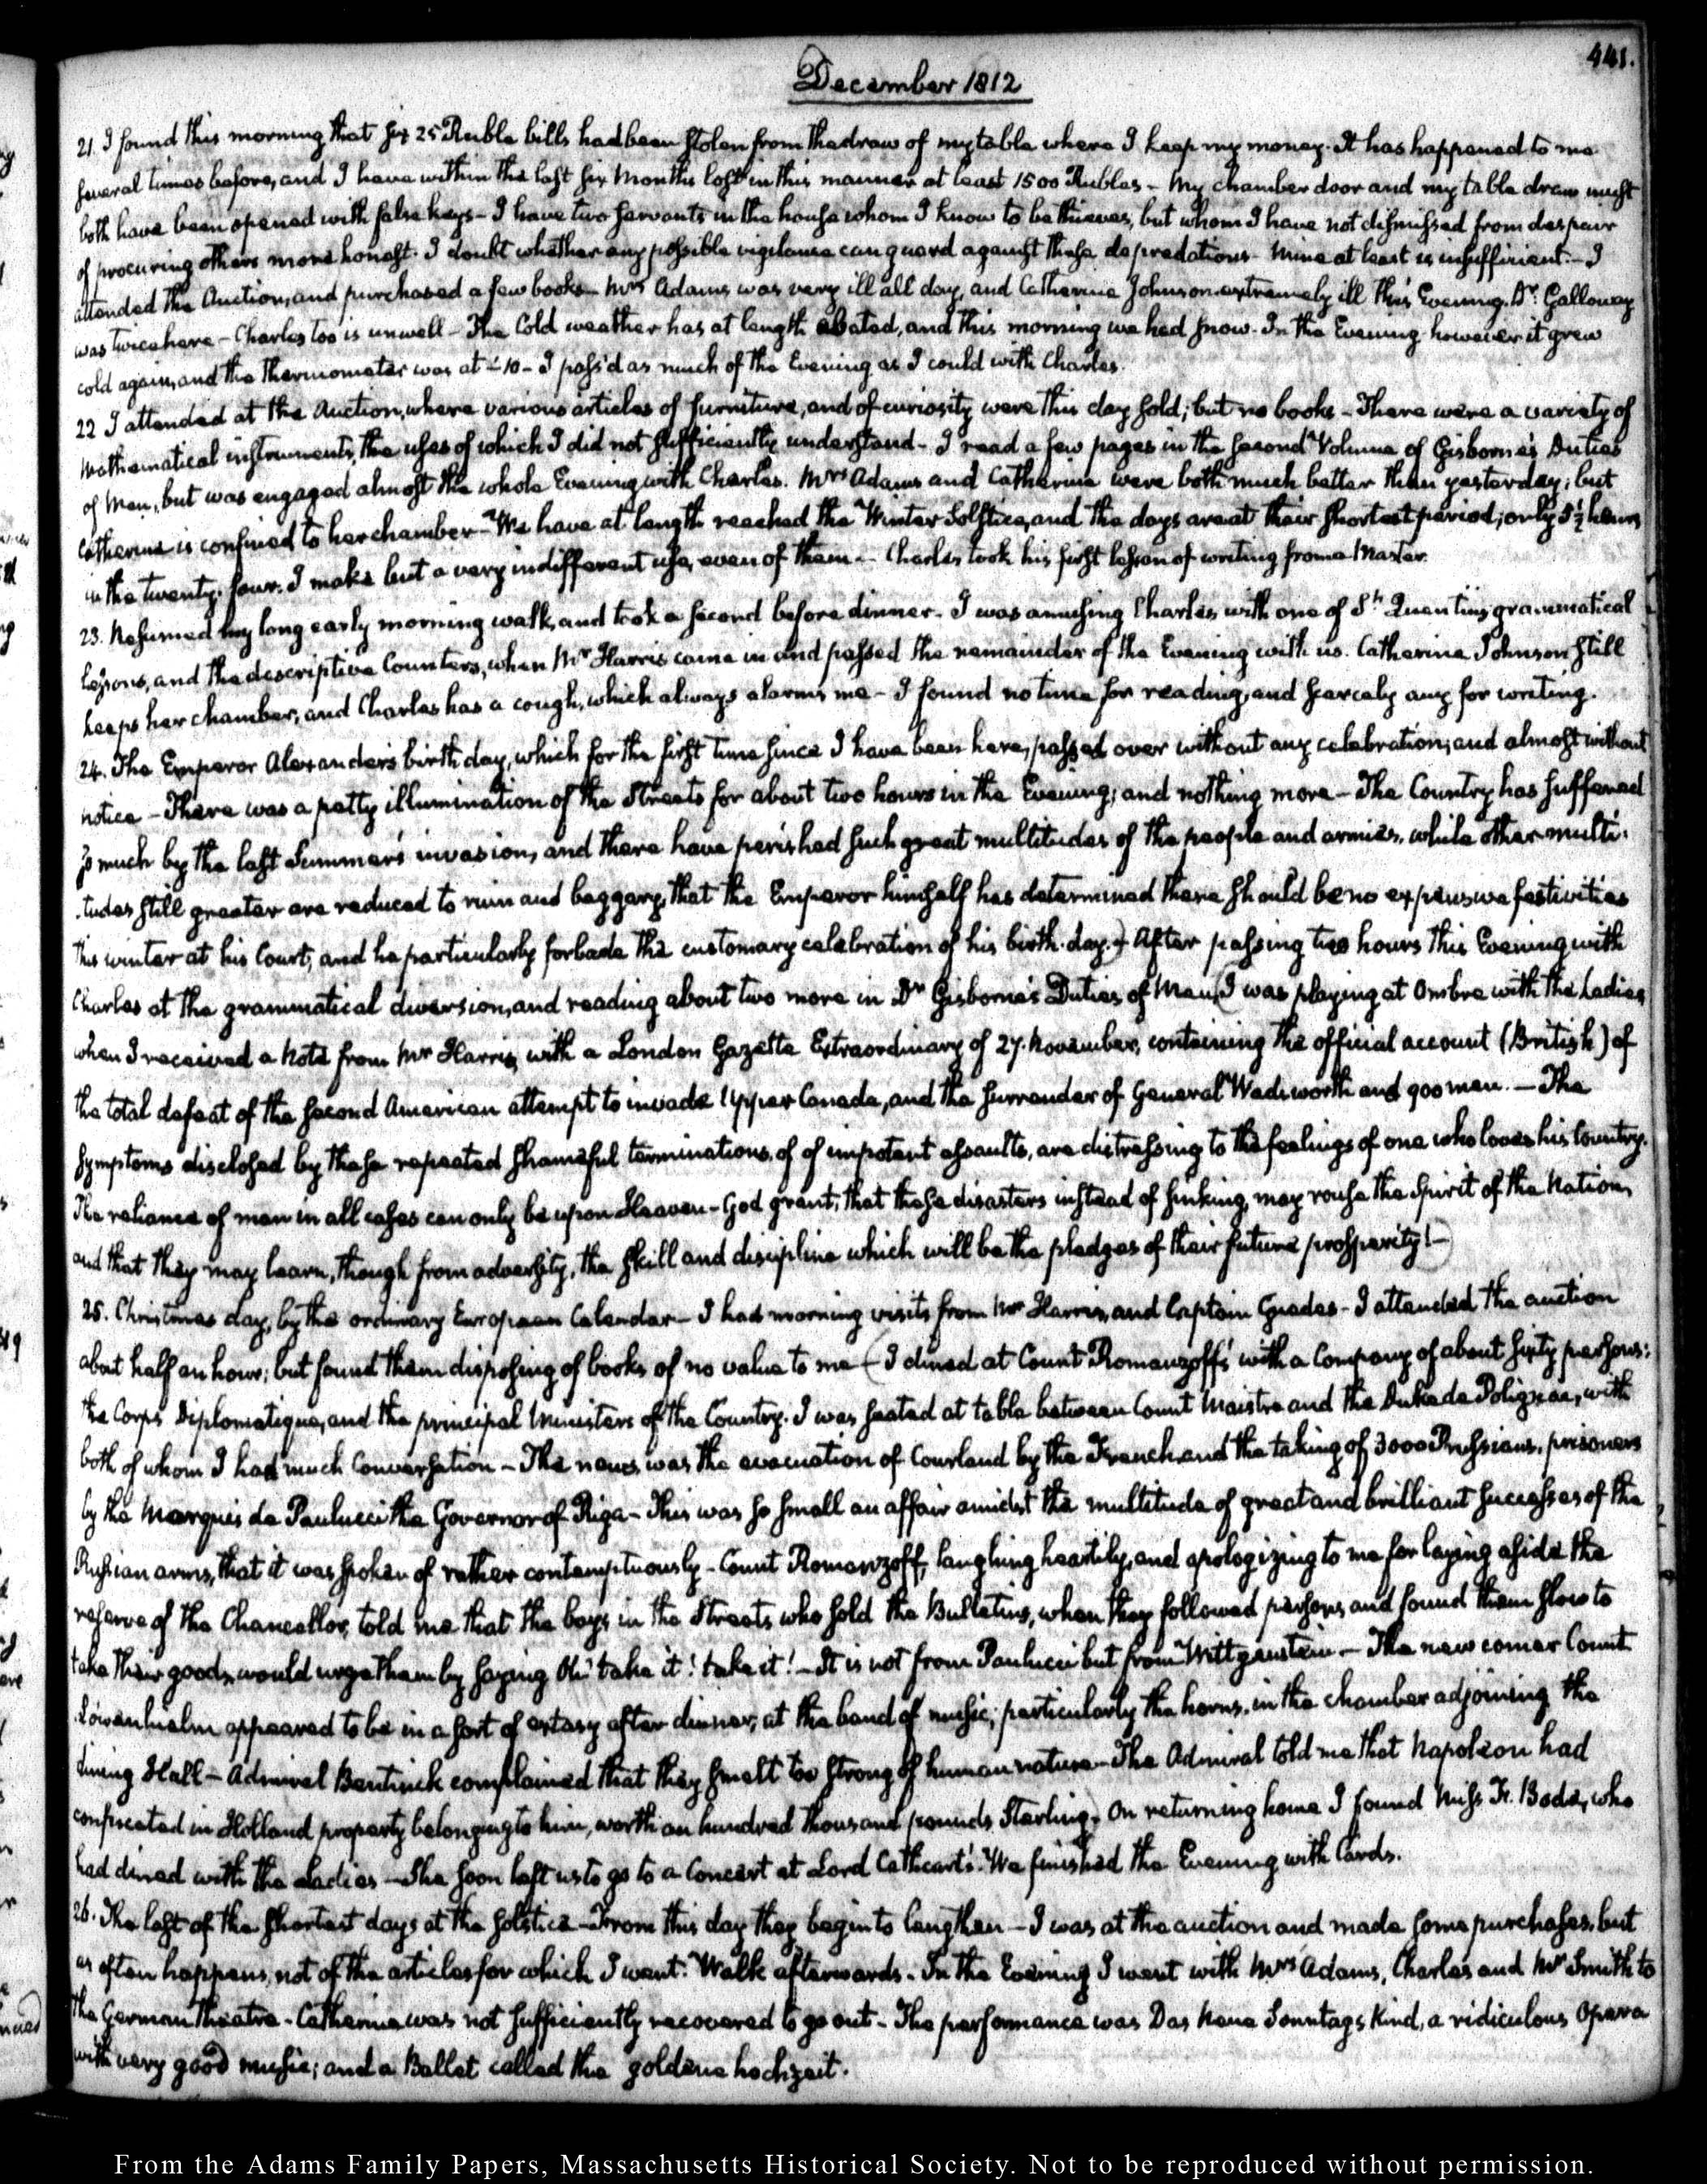 441.
December 1812
21. I found this morning that six 25 Ruble bills had been stolen from the draw of my table where I keep my money. It has happened to me
several times before, and I have within the last six Months lost in this manner at least 1500 Rubles - My chamber door and my table draw must
both have been opened with false keys - I have two servants in the house whom I know to be thieves, but whom I have not dismissed from despair
of procuring others more honest. I doubt whether any possible vigilance can guard against these depredations - Mine at least is insufficient. - I
attended the Auction, and purchased a few books - Mrs Adams was very ill all day, and Catherine Johnson extremely ill this Evening. Dr. Galloway
was twice here - Charles too is unwell - The Cold weather has at length abated, and this morning we had snow. In the Evening however it grew
cold again, and the Thermometer was at -10 - I pass'd as much of the Evening as I could with Charles.
22 I attended at the Auction, where various articles of furniture, and of curiosity were this day sold; but no books - There were a variety of
Mathematical instruments, the uses of which I did not sufficiently understand - I read a few pages in the second Volume of Gisborne's Duties
of Men, but was engaged almost the whole Evening with Charles. Mrs Adams and Catherine were both much better than yesterday; but
Catherine is confined to her chamber - We have at length reached the Winter Solstice, and the days are at their shortest period; only 5½ hours
in the twenty-four. I make but a very indifferent use, even of them - Charles took his first lesson of writing from a Master.
23. Resumed my long early morning walk, and took a second before dinner - I was amusing Charles with one of St. Quentin's grammatical
lessons, and the descriptive Counters, when Mr Harris came in and passed the remainder of the Evening with us. Catherine Johnson still
keeps her chamber, and Charles has a cough, which always alarms me - I found no time for reading, and scarcely any for writing.
24. The Emperor Alexander's birth day, which for the first time since I have been here, passed over without any celebration, and almost without
notice - There was a petty illumination of the Streets for about two hours in the Evening; and nothing more - The Country has suffered
so much by the last Summer's invasion, and there have perished such great multitudes of the people and armies, while other multi-
-tudes still greater are reduced to ruin and beggary, that the Emperor himself has determined there should be no expensive festivities
this winter at his Court, and he particularly forbade the customary celebration of his birth-day.) After passing two hours this Evening with
Charles at the grammatical diversion, and reading about two more in Dr Gisborne's Duties of Man, (I was playing at Ombre with the Ladies,
when I received a Note from Mr Harris, with a London Gazette Extraordinary of 27. November, containing the official account (British) of
the total defeat of the second American attempt to invade Upper Canada, and the surrender of General Wadsworth and 900 men. - The
symptoms disclosed by these repeated shameful terminations, of of impotent assaults, are distressing to the feelings of one who loves his Country.
The reliance of man in all cases can only be upon Heaven - God grant, that these disasters instead of sinking, may rouse the Spirit of the Nation,
and that they may learn, though from adversity, the skill and discipline which will be the pledges of their future prosperity! -)
25. Christmas day, by the ordinary European Calendar - I had morning visits from Mr Harris, and Captain Guedes - I attended the auction
about half an hour; but found them disposing of books of no value to me - (I dined at Count Romanzoff's with a Company of about sixty persons:
the Corps Diplomatique, and the principal Ministers of the Country. I was seated at table between Count Maistre and the Duke de Polignac, with
both of whom I had much Conversation - The news was the evacuation of Courland by the French, and the taking of 3000 Prussians, prisoners
by the Marquis de Paulucci the Governor of Riga - This was so small an affair amidst the multitude of great and brilliant successes of the
Russian arms, that it was spoken of rather contemptuously - Count Romanzoff, laughing heartily, and apologizing to me for laying aside the
reserve of the Chancellor, told me that the boys in the Streets who sold the Bulletins, when they followed persons, and found them slow to
take their goods, would urge them by saying Oh! take it! take it! - It is not from Paulucci but from Wittgenstein. - The new comer Count
Löwenhielm appeared to be in a sort of extasy after dinner, at the band of music; particularly the horns, in the chamber adjoining the
dining Hall - Admiral Bentinck complained that they smelt too strong of human nature - The Admiral told me that Napoleon had
confiscated in Holland property belonging to him, worth an hundred thousand pounds Sterling) On returning home I found Miss Fr. Bode, who
had dined with the Ladies - She soon left us to go to a Concert at Lord Cathcart's. We finished the Evening with Cards.
26. The last of the shortest days at the solstice - From this day they begin to lengthen - I was at the auction and made some purchases, but
as often happens, not of the articles for which I went. Walk afterwards. In the Evening I went with Mrs Adams, Charles and Mr Smith to
the German Theatre - Catherine was not sufficiently recovered to go out - The performance was Das Neue Sonntags Kind, a ridiculous Opera
with very good music; and a Ballet called the goldene hochzeit.
From the Adams Family Papers, Massachusetts Historical Society. Not to be reproduced without permission.